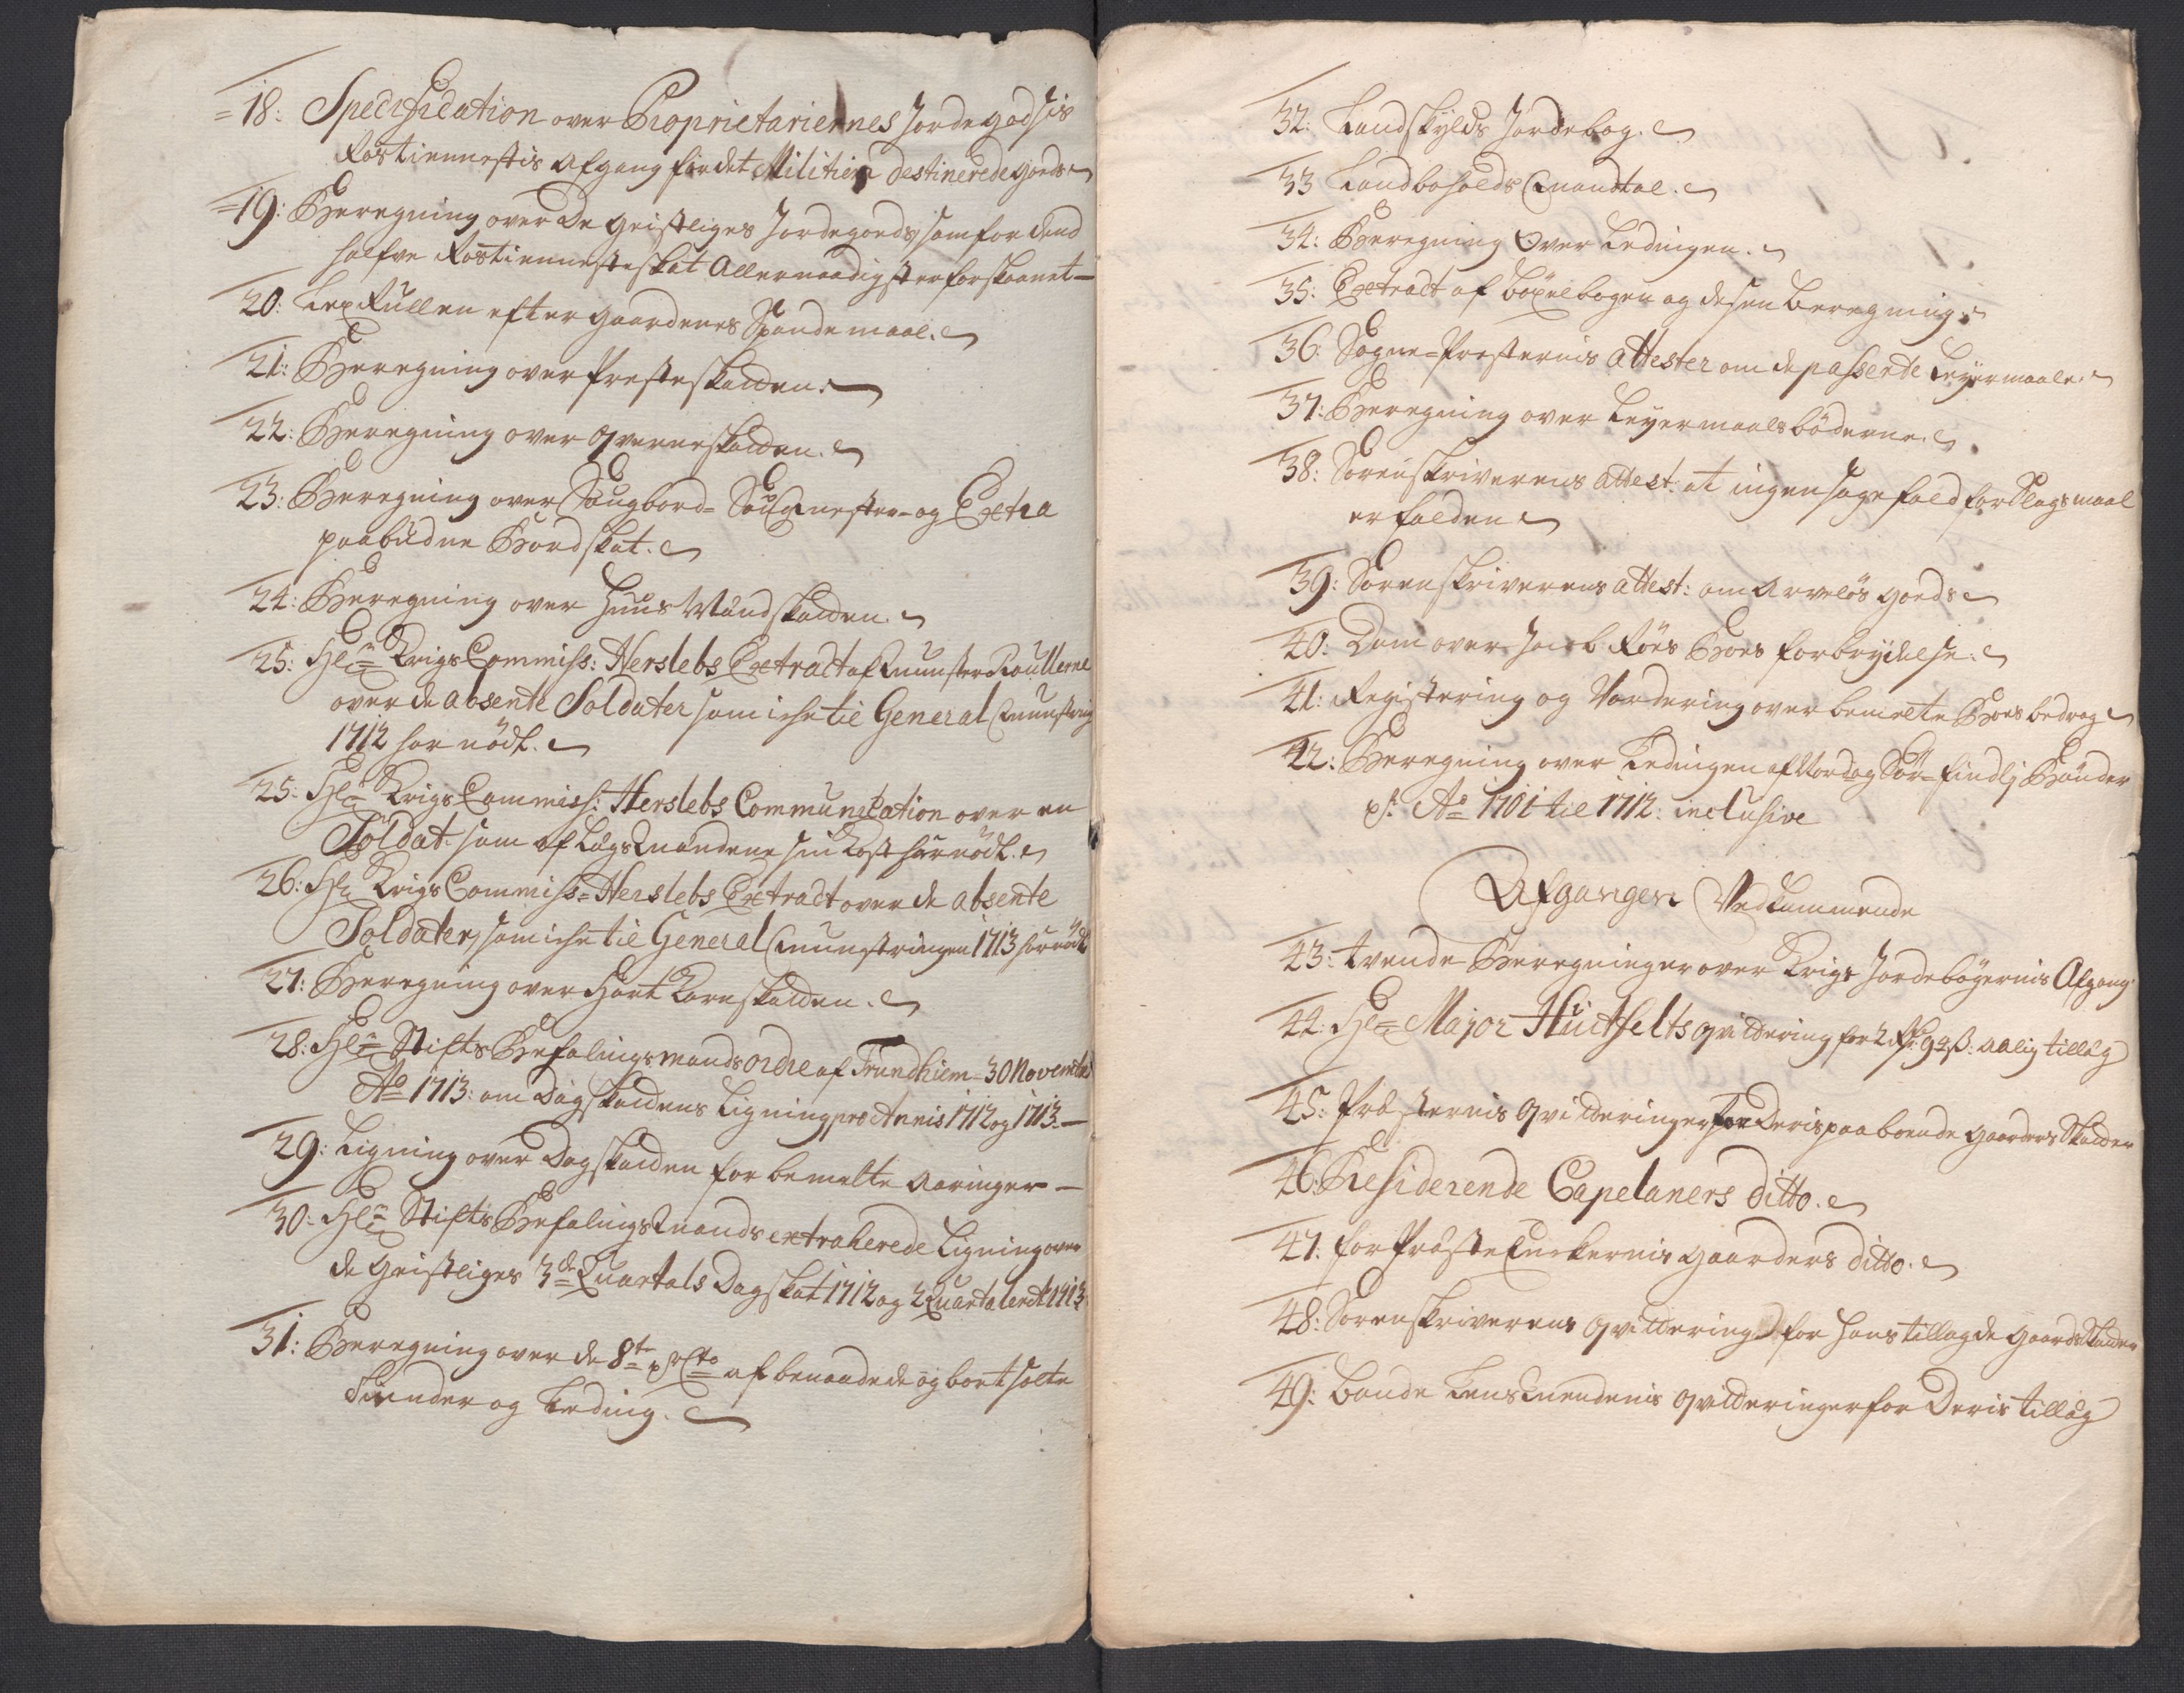 18: Specification over Proprietariernes Jordegodsis
Rostiennestis afgang for det Militien destinerede gods
19: Beregning over De geistliges Jordegoeds, som for dend
halfve Rostienneste skat Allernaadigst er forskaanet
20: Lex Rullen efter gaardenes Spande maal.
21: Beregning over Presteskatten.
22: Beregning over Qverneskatten.
23: Beregning over Saugbord= Saug Mester= og Extra
paabudne Bordskat.
24: Beregning over Huus Mandskatten.
25: Hr: Krigs Commiss: Herslebs Extract af Munster Roullerne
over de absente Soldater som iche til General Munstring
1712 har mödt.
25: Hr: Krigs Commiss: Herslebs Communication over en
Soldat som af Lægs Mandene sin Kost har nödt.
26: Hr: Krigs Commiss= Herslebs Extract over de absente
Soldater, som iche til General Munstringen 1713 har mödt
27: Beregning over Hart Kornskatten.
28: Hr: Stifts Befalings mands ordre af Trundhiem 30 Novembr
Ao 1713: om Dagskattens Ligning pro Annis 1712 og 1713.
29: Ligning over Dagskatten for bemelte Aaringer
30: Hr: Stifts Befalings Mands extraherede Ligning over
de geistliges 3de Quartals Dagskat 1712 og 2 Quartaler dto 1713
31: Beregning over de 8te pr Cto af benaadede og bortsolte
Tiender og Leding.
32: Landskylds Jordebog.
33 Landboholds Mandtal.
34: Beregning Over Ledingen.
35: Extract af böxelbogen og dessen Beregning
36: Sogne=Presternis attester om de passerte Leyermaale.
37: Beregning over Leyermaals böderne.
38: Sorenskriverens attest: at ingen sagefald for Slagsmaal
er falden
39: Sorenskriverens attest: om arvelös goeds
40: Dom over Jacob Röes Boes forbrydelse.
41: Registering og Vordering over bemelte Boes bedrag
42: Beregning over Ledingen af Nord og Sör=findlj Bönder
pr: Ao 1701 til 1712: inclusive
Afgangen Vedkommende
43: tvende Beregninger over Krigs Jordebögernis Afgang
44: Hr: Major Huitfelts qvittering for 2 Rdr: 92 s: Aalig tillæg
45: Præsternis qvitteringer for Deris paaboende gaarders Skatter
46: Residerende Capelaners ditto.
47: for Præste Enkernis gaarders ditto.
48: Sorenskriverens qvittering for hans tillagde gaards Skatter
49: Bonde Lens Mendenis qvitteringer for Deris tillæg